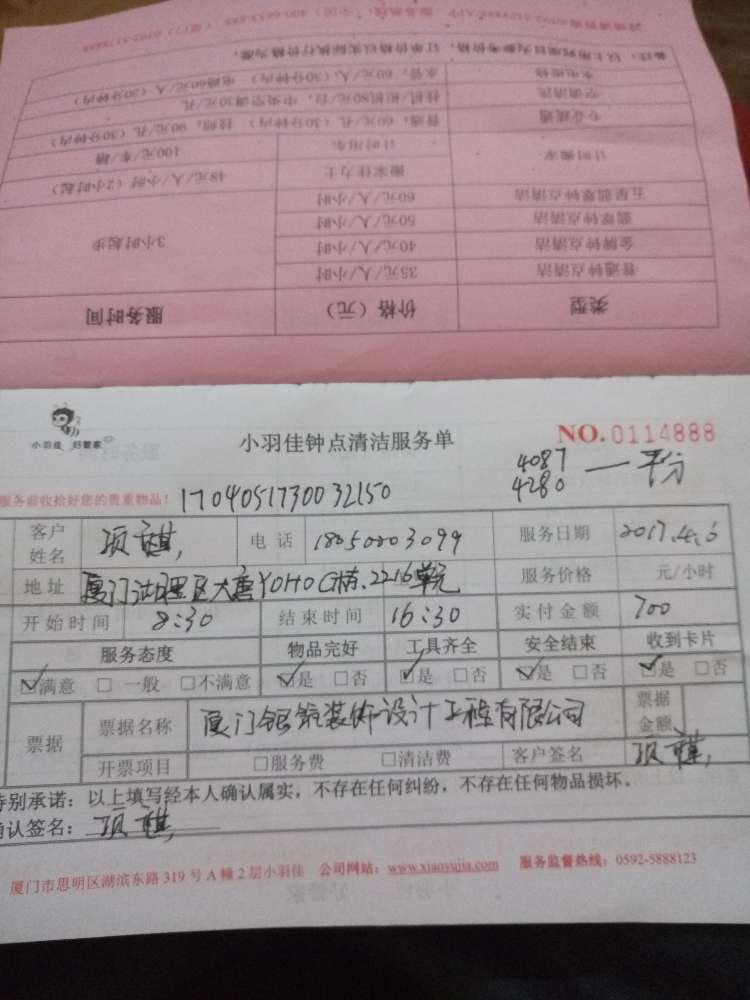 详情请咨询小羽佳APP 服务热线：
备注：以上所列项目为参考价格，订单价格以实际执行价格为准。
水电维修 水管，60元/人（30分钟内） 电路60元/人（30分钟内）
空调清洗 挂机/柜机80元/台，中央空调30元/孔
专业疏通 普通，60元/孔（30分钟内） 拉师，90元/孔（30分钟内）
计时搬家 计时用车 100元/车/趟
搬家佳力士 48元/人/小时（2小时起）
五星翡翠钟点清洁 60元/人/小时
翡翠钟点清洁 50元/人/小时
金牌钟点清洁 40元/人/小时
普通钟点清洁 35元/人/小时
3小时起步
类型 价格（元） 服务时间
小羽佳 好管家
小羽佳钟点清洁服务单
NO.0114888
4087
4280 一平分
服务前收拾好您的贵重物品！ 1704051730032150
客户姓名 项麒 电话 18050203099 服务日期 2017.4.6
地址 厦门湖里区大唐YOHO C栋.2216单元 服务价格 元/小时
开始时间 8:30 结束时间 16:30 实付金额 700
服务态度 物品完好 工具齐全 安全结束 收到卡片
☑满意 □一般 □不满意 ☑是 □否 ☑是 □否 ☑是 □否 ☑是 □否
票据 票据名称 厦门银筑装饰设计工程有限公司 票据金额
开票项目 □服务费 □清洁费 客户签名 项麒
特别承诺：以上填写经本人确认属实，不存在任何纠纷，不存在任何物品损坏。
确认签名：项麒
厦门市思明区湖滨东路319号A幢2层小羽佳 公司网站：www.xiaoyujia.com 服务监督热线：0592-5888123